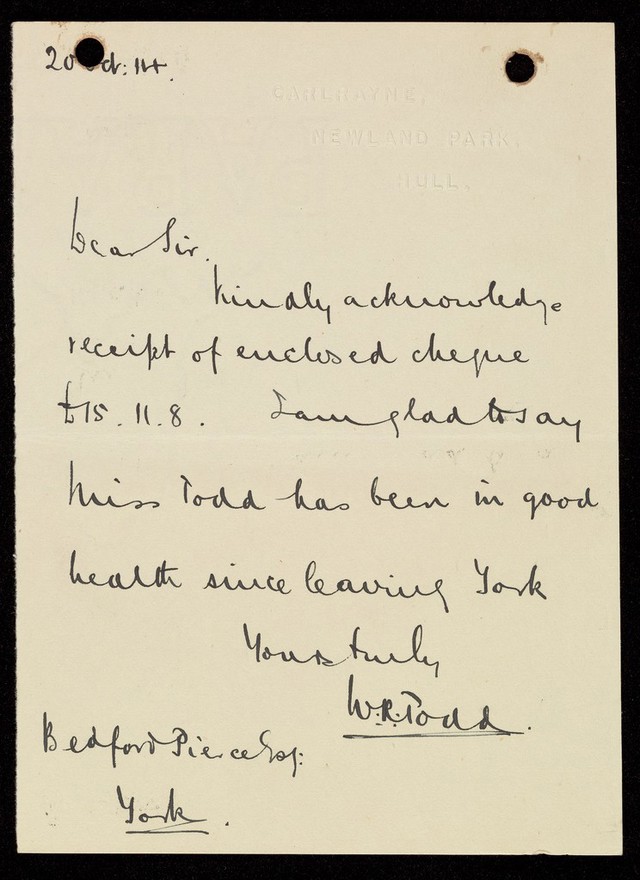 20 Oct: 14.
CARLRAYNE,
NEWLAND PARK,
HULL.
Dear Sir.
Kindly acknowledge
receipt of enclosed cheque
£15. 11. 8. I am glad to say
Miss Todd has been in good
health since leaving York
Yours truly
W.R. Todd.
Bedford Pierce Esq:
York.